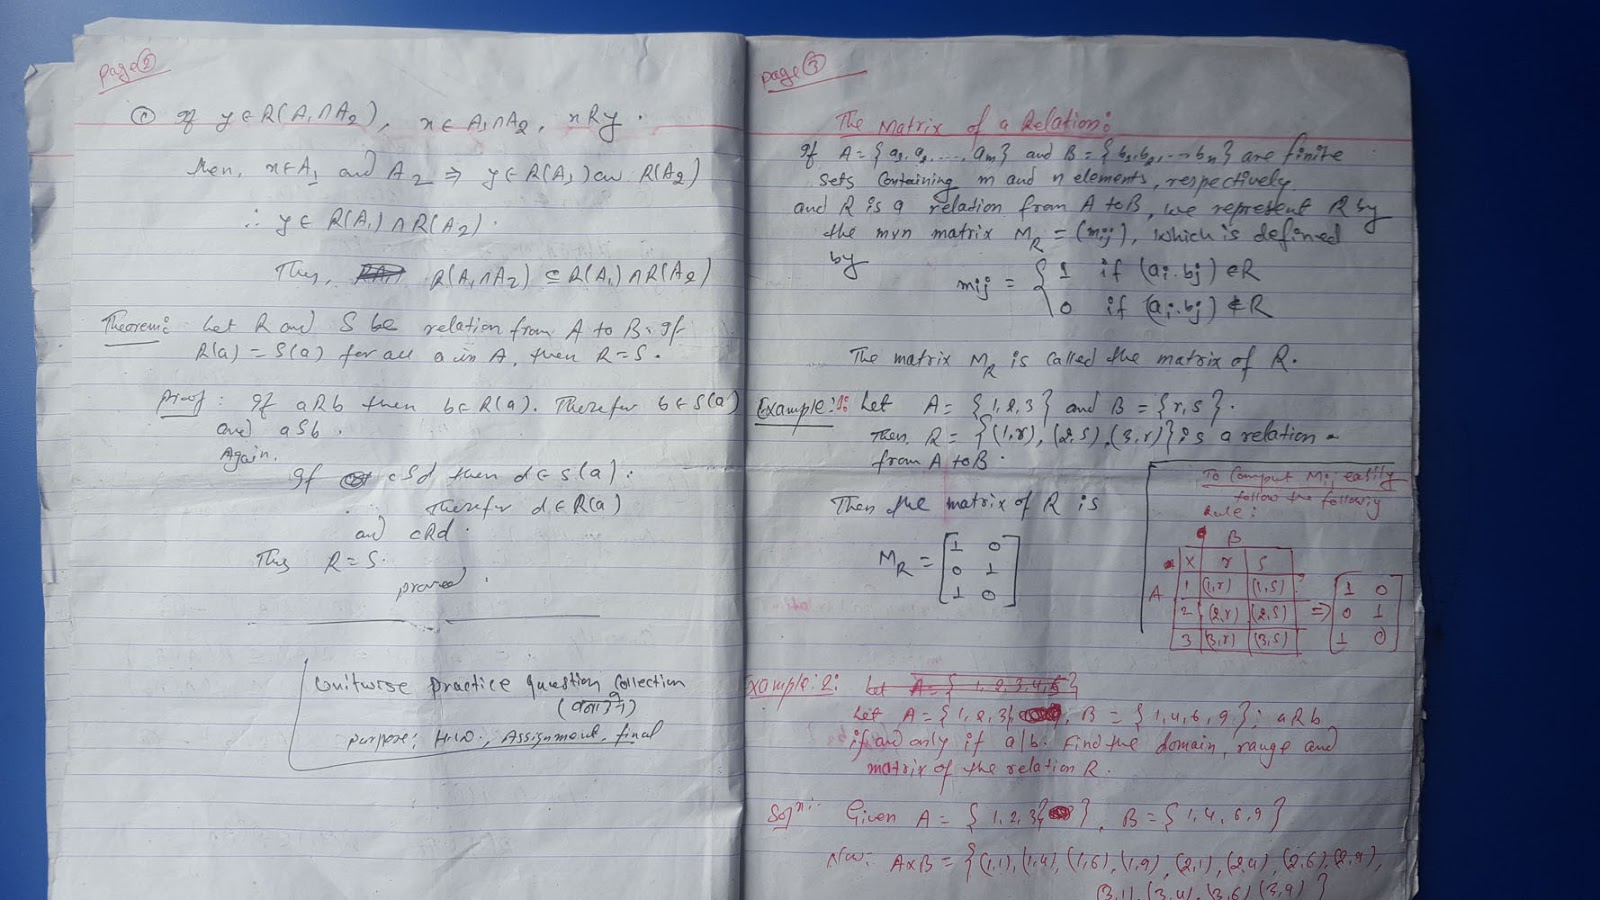 Page ②
① If y ∈ R(A₁∩A₂), x ∈ A₁∩A₂, xRy.
then, x∈A₁ and A₂ ⇒ y ∈ R(A₁) and R(A₂)
∴ y ∈ R(A₁) ∩ R(A₂).
Thus, R(A₁∩A₂) ⊆ R(A₁) ∩ R(A₂)
Theorem: Let R and S be relation from A to B. If
R(a) = S(a) for all a in A, then R = S.
Proof: If aRb then b∈R(a). Therefor b∈S(a)
and aSb.
Again,
If cSd then d∈S(a).
Therefor d∈R(a)
and cRd.
Thus R = S.
proved.
Unitwise practice question collection
purpose: H.W., Assignment, final
page ③
The Matrix of a Relation:
If A = {a₁, a₂, ...., aₘ} and B = {b₁, b₂, ... bₙ} are finite
sets containing m and n elements, respectively
and R is a relation from A to B, we represent R by
the mxn matrix M_R = (mij), which is defined
by
mij = { 1 if (ai.bj) ∈ R
0 if (ai.bj) ∉ R
The matrix M_R is called the matrix of R.
Example: 1: Let A = {1, 2, 3} and B = {r, s}.
Then, R = {(1,r), (2,s), (3,r)} is a relation
from A to B.
Then the matrix of R is
M_R = [1 0
0 1
1 0]
To comput Mij easily
follow the followig
rule:
B
x r s
A 1 (1,r) (1,s) 1 0
2 (2,r) (2,s) ⇒ 0 1
3 (3,r) (3,s) 1 0
Example: 2: Let A = {1, 2, 3, 4, 5}
Let A = {1, 2, 3}, B = {1, 4, 6, 9}; aRb
if and only if a|b. Find the domain, range and
matrix of the relation R.
Solⁿ: Given A = {1, 2, 3}, B = {1, 4, 6, 9}
Now: AxB = {(1,1), (1,4), (1,6), (1,9), (2,1), (2,4), (2,6), (2,9),
(3,1), (3,4), (3,6), (3,9)}